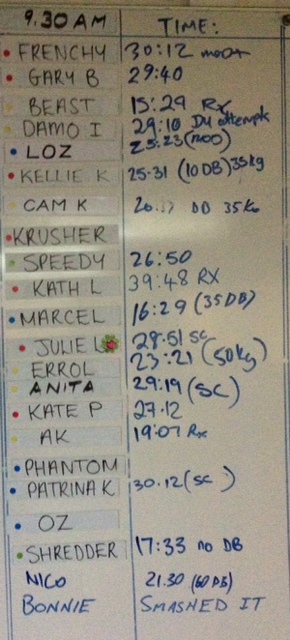 9.30 AM TIME:
FRENCHY 30:12
GARY B 29:40
BEAST 15:29 Rx
DAMO I 29:10 DU attempt
LOZ 25:23 (mod)
KELLIE K 25.31 (10 DB) 35kg
CAM K DB 35kg
KRUSHER
SPEEDY 26:50
KATH L 39:48 RX
MARCEL 16:29 (35 DB)
JULIE L 28:51 SC
ERROL 23:21 (50kg)
ANITA 29:19 (SC)
KATE P 27.12
AK 19:07 Rx
PHANTOM
PATRINA K 30.12 (SC)
OZ
SHREDDER 17:33 no DB
NICO 21.30 (60 DB)
BONNIE SMASHED IT